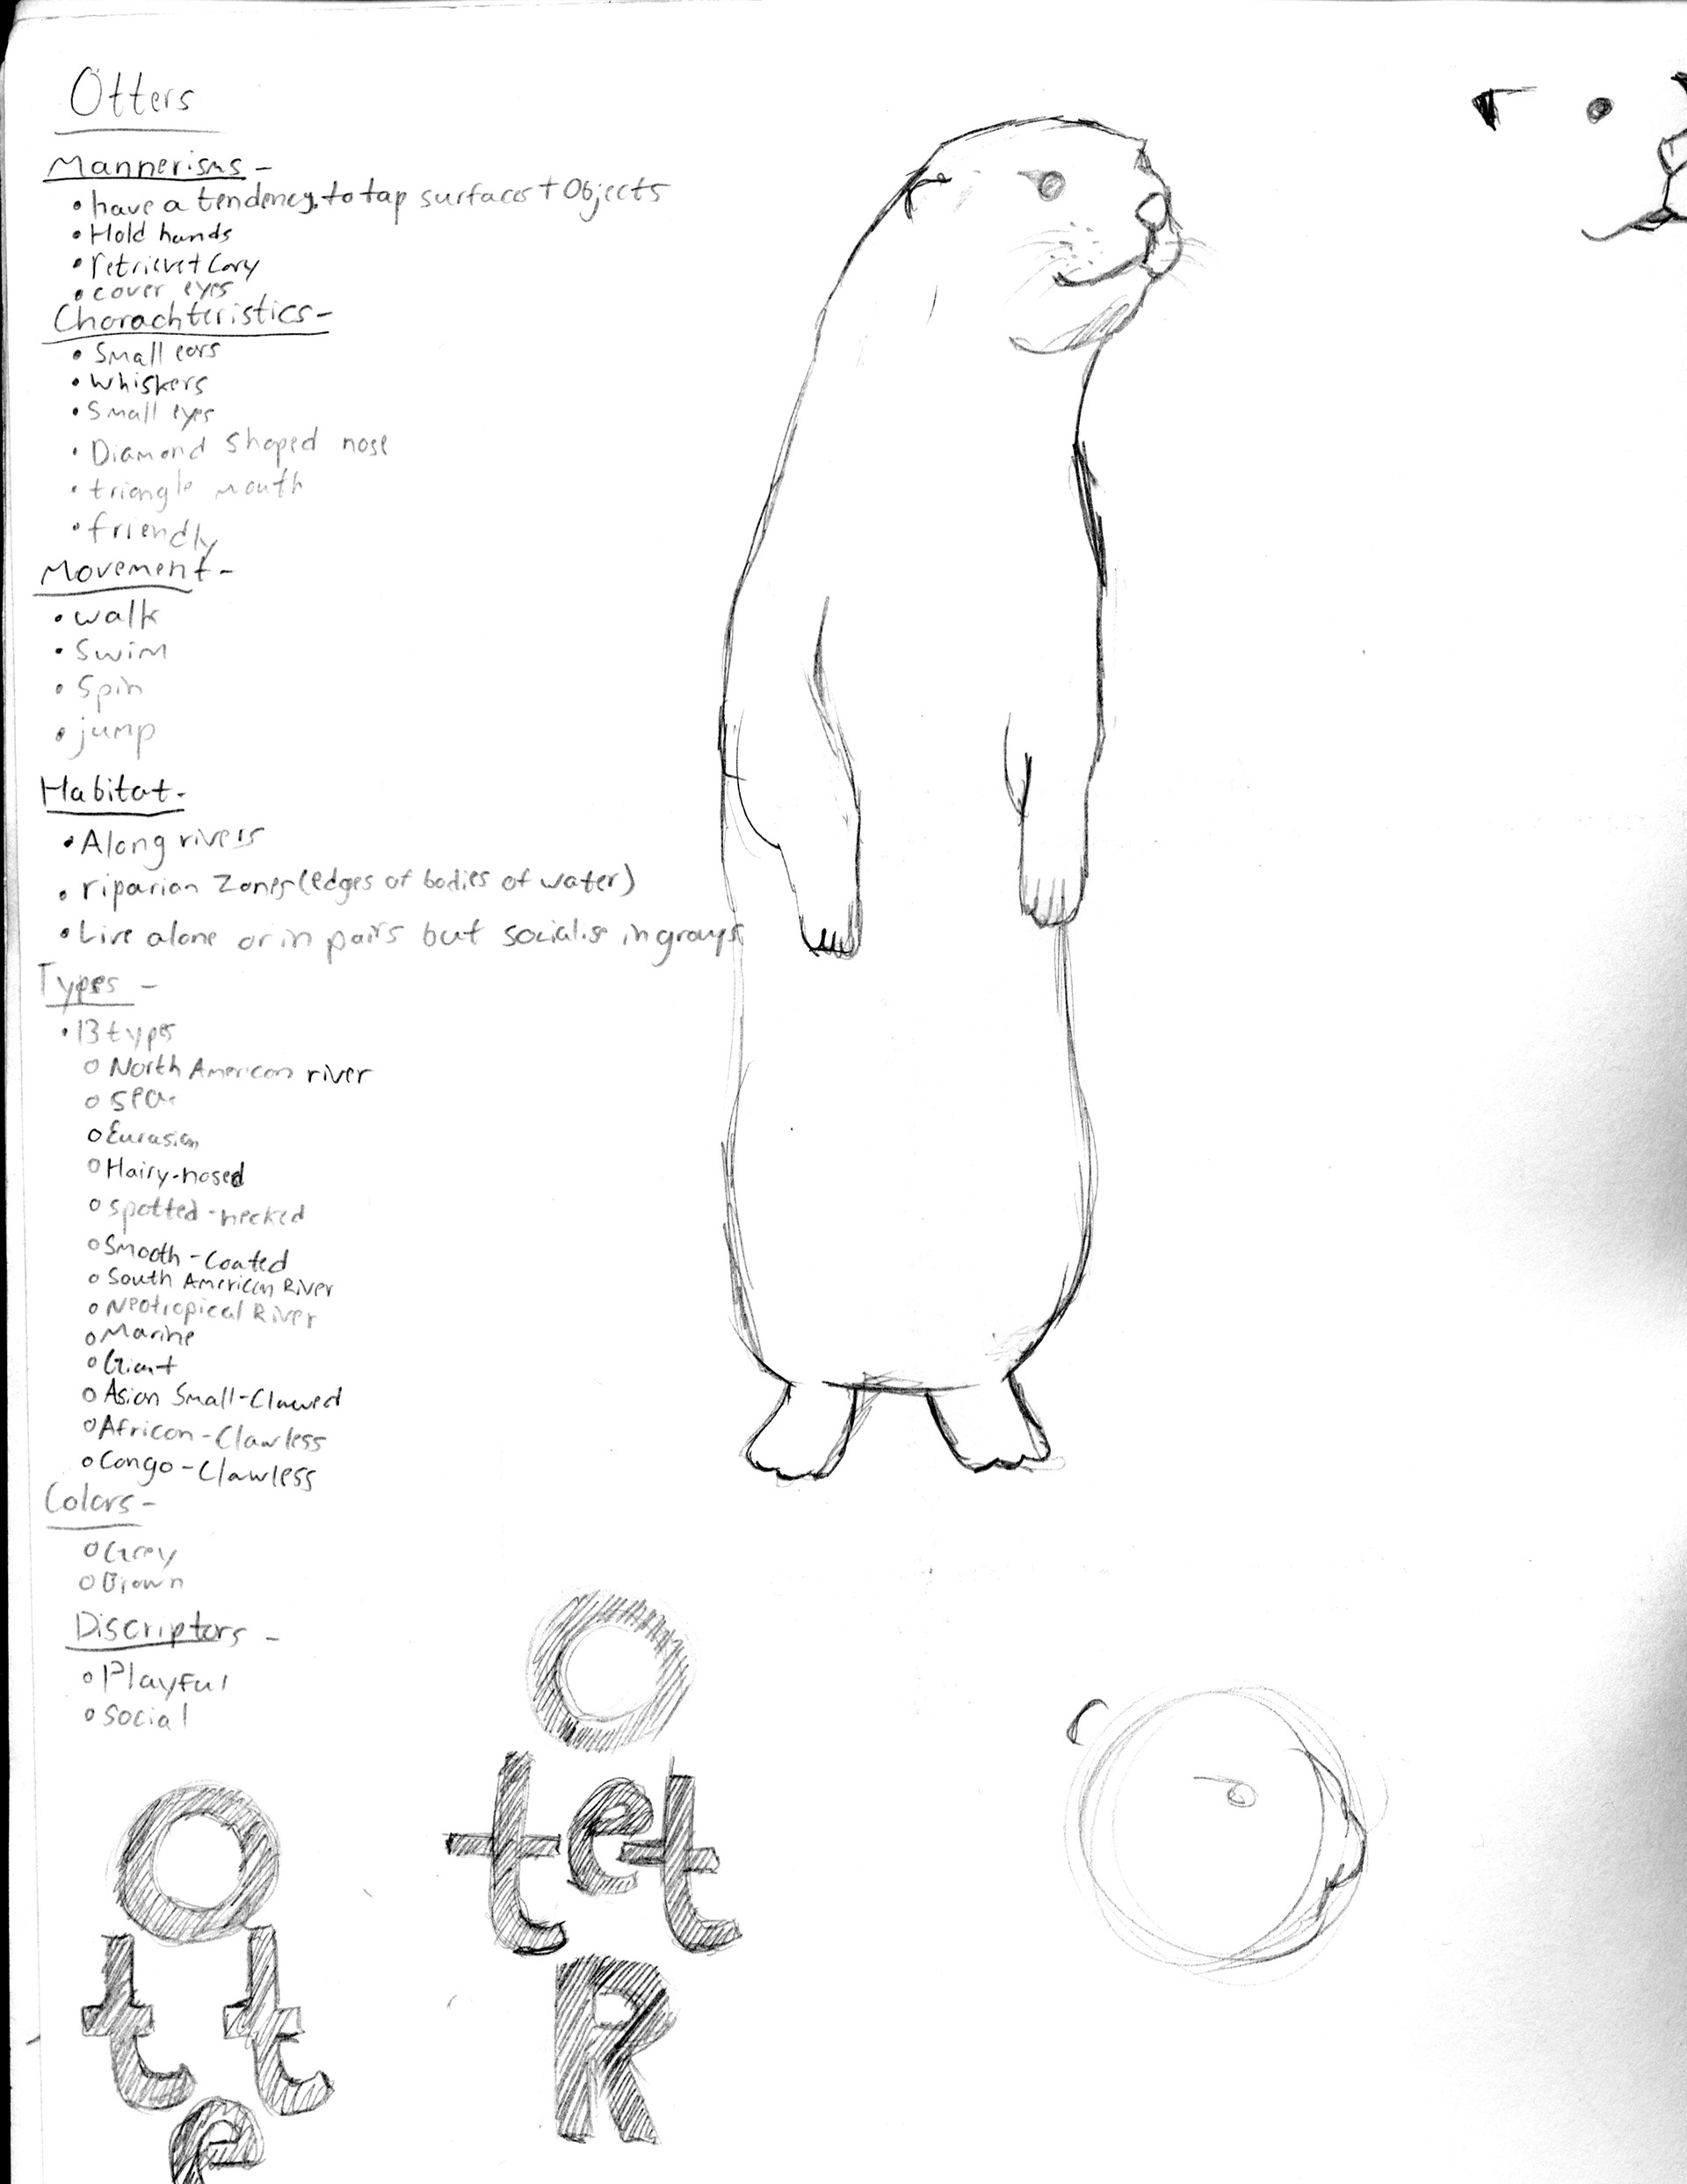 Otters
Mannerisms -
• have a tendency to tap surfaces + Objects
• Hold hands
• retrieve + Cary
• cover eyes
Charachteristics -
• Small ears
• whiskers
• Small eyes
• Diamond Shaped nose
• triangle mouth
• friendly
Movement -
• walk
• Swim
• Spin
• jump
Habitat -
• Along rivers
• riparian Zones (edges of bodies of water)
• Live alone or in pairs but socialise in groups
Types -
• 13 types
o North American river
o Sea
o Eurasian
o Hairy-nosed
o spotted-necked
o Smooth-Coated
o South American River
o Neotropical River
o Marine
o Giant
o Asian Small-Clawed
o African-Clawless
o Congo-Clawless
Colors -
o Grey
o Brown
Discriptors -
o Playful
o Social
O
t t
e
O
tet
R